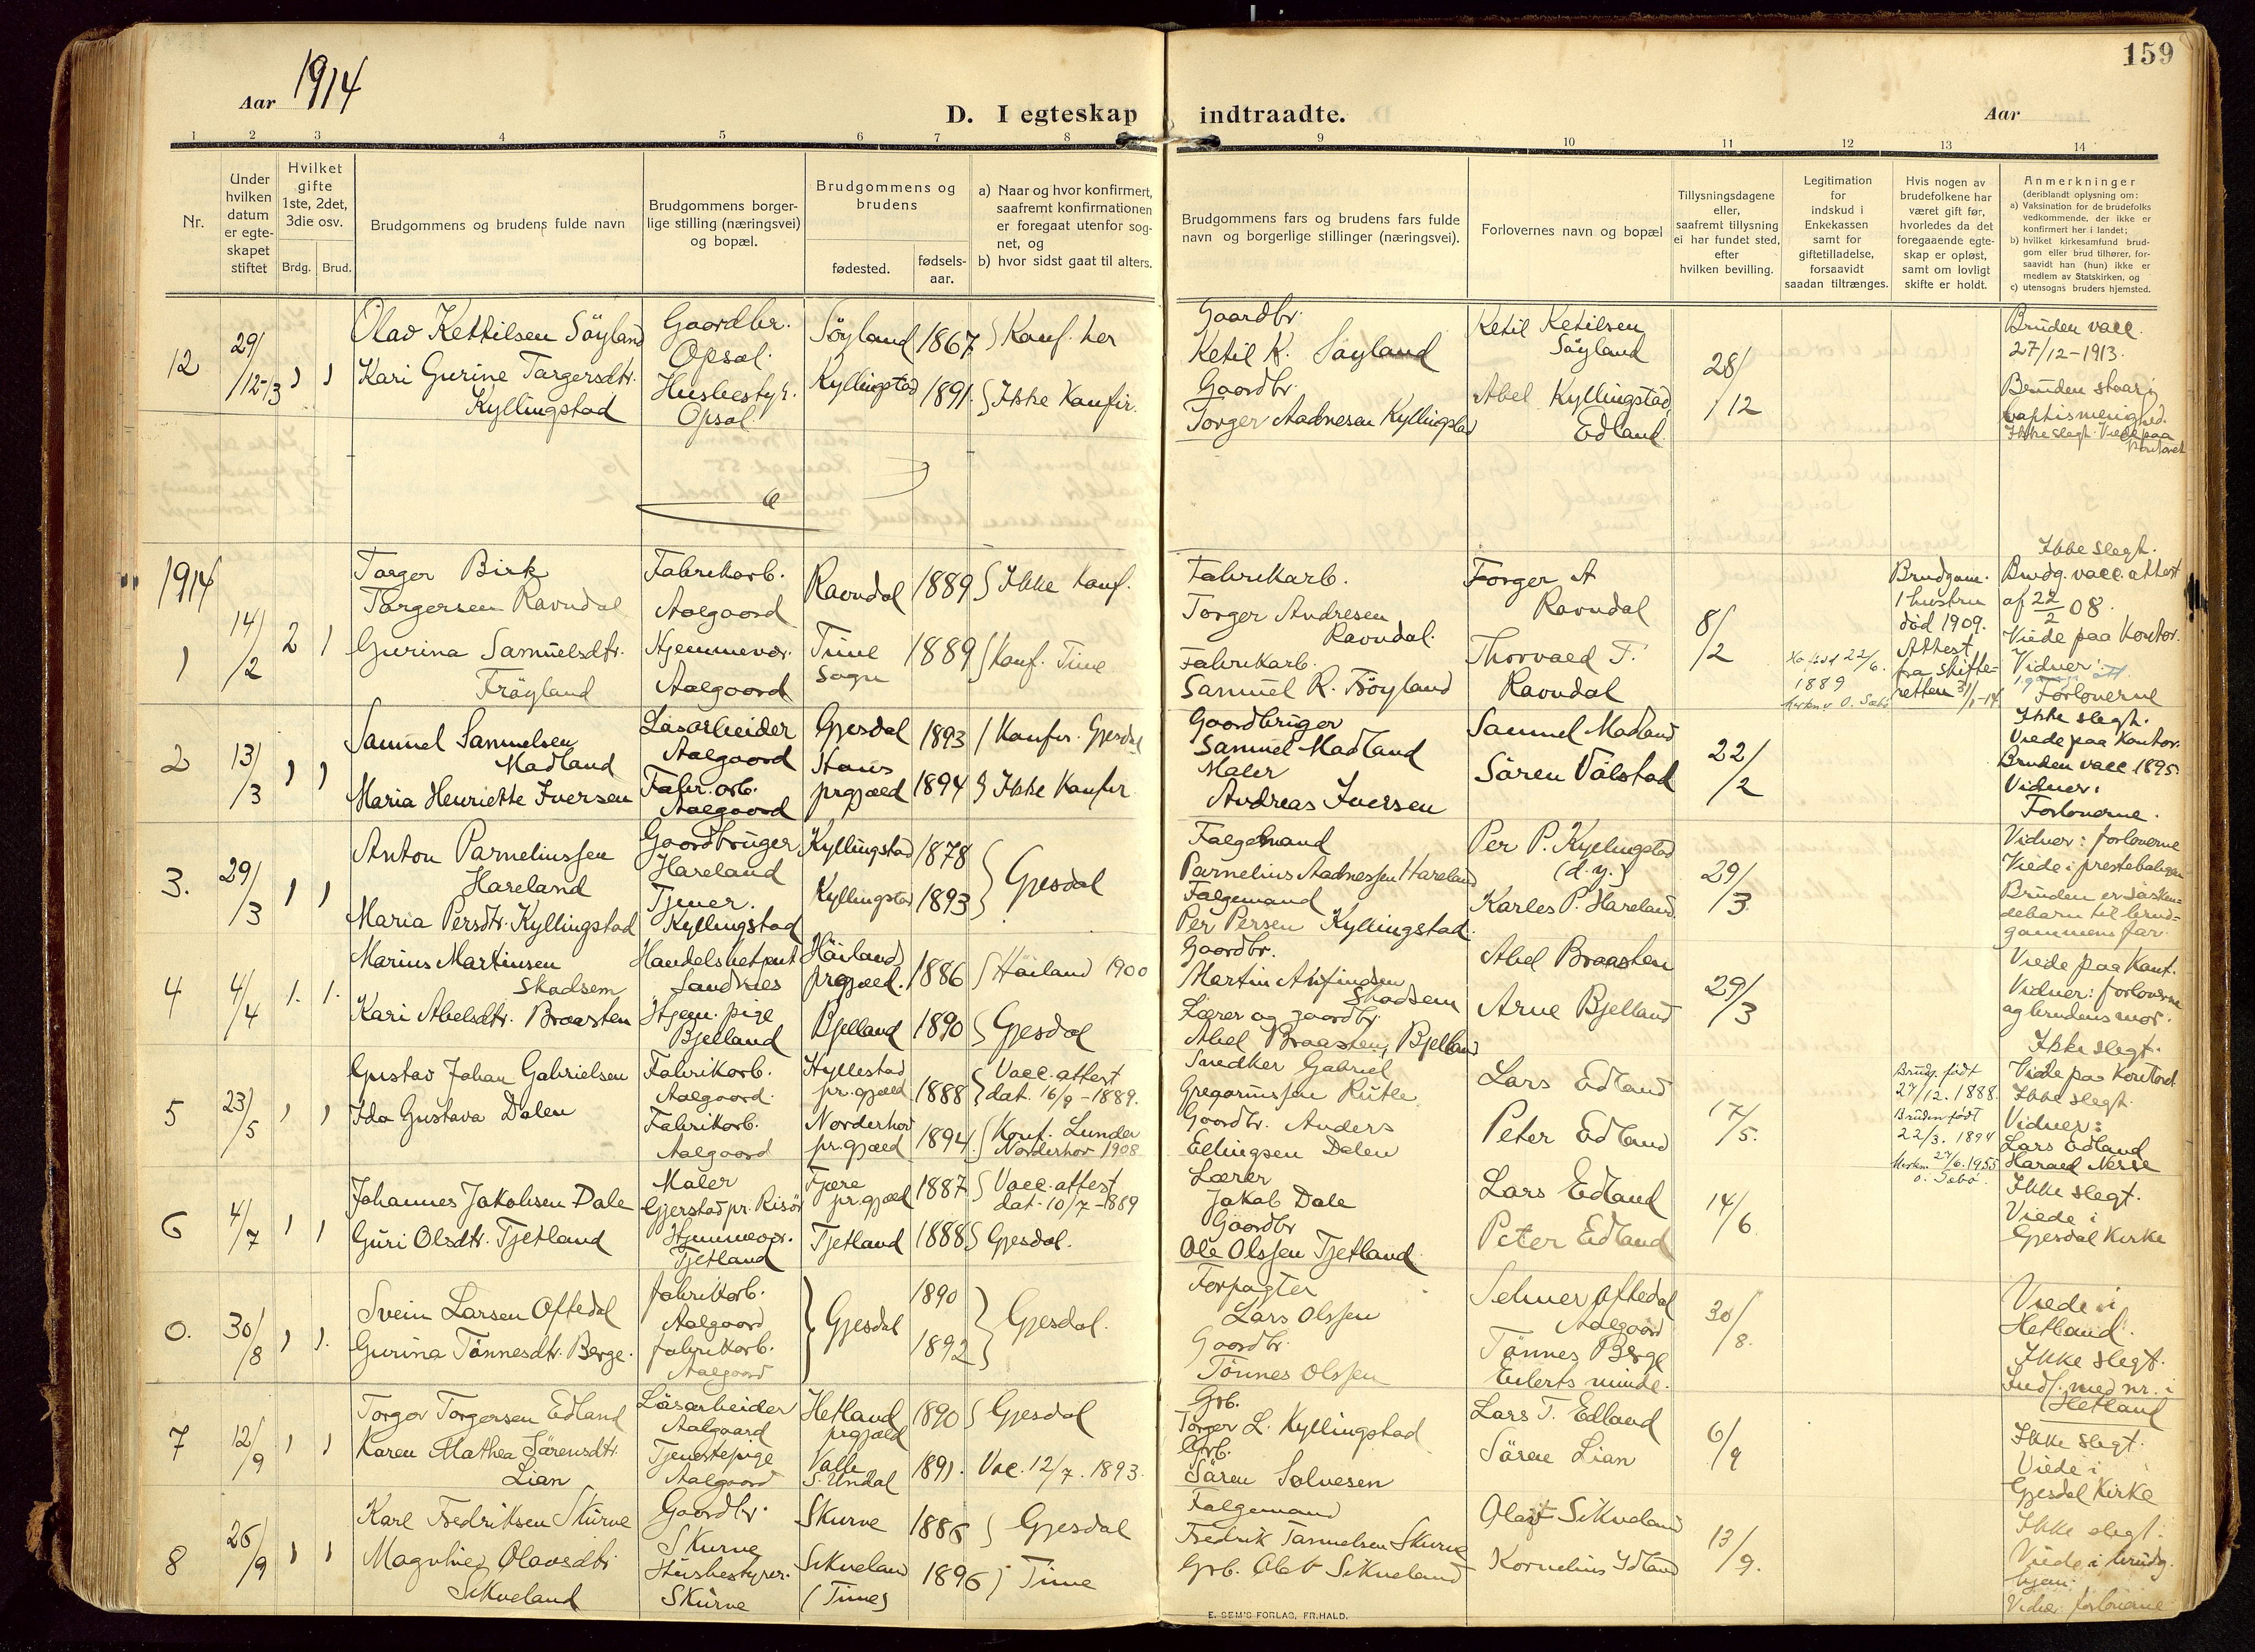 159
Aar 1914
D. I egteskap indtraadte.
Aar
1 2 3 4 5 6 7 8 9 10 11 12 13 14
Nr.
Under hvilken datum er egteskapet stiftet
Hvilket gifte 1ste, 2det, 3die osv.
Brdg. Brud.
Brudgommens og brudens fulde navn
Brudgommens borgerlige stilling (næringsvei) og bopæl.
Brudgommens og brudens
fødested.
fødselsaar.
a) Naar og hvor konfirmert, saafremt konfirmationen er foregaat utenfor sognet, og
b) hvor sidst gaat til alters.
Brudgommens fars og brudens fars fulde navn og borgerlige stillinger (næringsvei).
Forlovernes navn og bopæl
Tillysningsdagene eller, saafremt tillysning ei har fundet sted, efter hvilken bevilling.
Legitimation for indskud i Enkekassen samt for giftetilladelse, forsaavidt saadan tiltrænges.
Hvis nogen av brudefolkene har været gift før, hvorledes da det foregaaende egteskap er opløst, samt om lovligt skifte er holdt.
Anmerkninger
(deriblandt oplysning om:
a) Vaksination for de brudefolks vedkommende, der ikke er konfirmert her i landet;
b) hvilket kirkesamfund brudgom eller brud tilhører, forsaavidt han (hun) ikke er medlem av Statskirken, og
c) utensogns bruders hjemsted.
12
29/12-13
1 1
Olav Kettilsen Söyland
Kari Gurine Torgersdtr.
Kyllingstad
Gaardbr.
Opsal.
Husbestyr.
Opsal
Söyland 1867 Konf. her
Kyllingstad 1891. Ikke Konfir.
Gaardbr.
Ketil K. Soyland
Gaardbr.
Torger Aadnesen Kyllingstad
Ketil Ketilsen
Söyland
Abel Kyllingstad
Edland
28/12
Bruden vacc.
27/12-1913.
Bruden staar i
baptismenighed.
Ikke slegt. Viede paa
Kontoret
1914
1
14/2
2 1
Torger Birk
Torgersen Ravndal
Gurina Samuelsdtr.
Fröyland
Fabrikarb.
Aalgaard
Hjemmevær.
Aalgaard
Ravndal 1889 Ikke Konf.
Time
Sogn 1889 Konf. Time
Fabrikarb.
Torger Andresen
Ravndal.
Fabrikarb.
Samuel R. Fröyland
Torger A
Ravndal
Thorvald T.
Ravndal
8/2
22/6.
1889
Brudgom.
1 hustru
död 1909.
Attest
fra skifte-
retten 31/1-14
Ikke slegt.
Brudg. vacc. attest
af 22/2 08.
Viede paa Kontor.
Vidner:
Forloverne
2
13/3
1 1
Samuel Samuelsen
Madland
Maria Henriette Iversen
Lösarbeider
Aalgaard
Fabr. arb.
Aalgaard
Gjesdal 1893 Konfir. Gjesdal
prgjæld 1894 Ikke Konfir.
Gaardbruger
Samuel Madland
Maler
Andreas Iversen
Samuel Madland
Sören Válstad
22/2
Ikke slegt.
Viede paa Kontor.
Bruden vacc. 1895.
Vidner:
Forloverne.
3.
29/3
1 1
Anton Parneliussen
Hareland
Maria Persdtr. Kyllingstad
Gaardbruger
Hareland
Tjener.
Kyllingstad
Kyllingstad 1878
Kyllingstad 1893
Gjesdal
Folgemand
Parnelius Aadnessen Hareland
Folgemand
Per Persen Kyllingstad.
Per P. Kyllingstad
(d. y.)
Karles P. Hareland
29/3
Vidner: forloverne
Viede i presteboligen
Bruden er søsken-
debarn til brud-
gommens far.
4
4/4
1. 1.
Marius Martinsen
Skadsem
Kari Abelsdtr. Braasten
Handelsbetjent
Sandnes
Hjem. pige
Bjelland
Höiland
prgjæld. 1886 Höiland 1900
Bjelland 1890 Gjesdal
Gaardbr.
Martin Anfindsen
Skadsem
Lærer og gaardbr.
Abel Braasten, Bjelland
Abel Braasten
Arne Bjelland
29/3
Viede paa Kont.
Vidner: forloverne
og brudens mor.
Ikke slegt.
5
23/5
1 1
Gustav Johan Gabrielsen
Ida Gustava Dalen
Fabrikarb.
Aalgaard.
Fabrikarb.
Aalgaard
Hyllestad
pr.gjæld 1888
Norderhov
pr.gjæld 1894
Vacc. attest
dat. 16/9-1889.
Konf. Lunder
Norderhov 1908
Snedker Gabriel
Gregoriussen Rutle
Gaardbr. Anders
Ellingsen Dalen
Lars Edland
Peter Edland
17/5.
Brudg. født
27/12. 1888.
Bruden født
22/3. 1894
Viede paa Kontoret
Ikke slegt.
Vidner:
Lars Edland
Harald Nesse
6
4/7
1 1
Johannes Jakobsen Dale
Guri Olsdtr. Tjetland
Maler
Gjerstad pr. Risör
Hjemmevær.
Tjetland
Fjære
pr. gjæld 1887
Tjetland 1888
Vacc. attest
dat. 10/7-1889
Gjesdal.
Lærer
Jakob Dale
Gaardbr
Ole Olssen Tjetland.
Lars Edland
Peter Edland
14/6
Ikke slegt.
Viede i
Gjesdal Kirke
0.
30/8
1 1.
Svein Larsen Oftedal
Gurina Tönnesdtr. Berge.
fabrikarb.
Aalgaard
fabrikarb.
Aalgaard
Gjesdal
1890
1892
Gjesdal.
Forpagter
Lars Olssen
Gaardbr.
Tönnes Olssen
Selmer Oftedal
Aalgaard
Tönnes Berge
Eilerts minde.
30/8.
Viede i
Hetland.
Ikke slegt.
Indf. med nr. i
Hetland
7
12/9
1 1
Torger Torgersen Edland
Karen Mathea Sörensdtr.
Lian
Lösarbeider
Aalgaard
Tjenestepige
Aalgaard
Hetland
prgjæld 1890 Gjesdal
Valle
S. Undal 1891. Vac. 12/7. 1893.
Grb.
Torger L. Kyllingstad
Grb.
Sören Salvesen
Lars T. Edland
Sören Lian
6/9
Ikke slegt.
Viede i
Gjesdal Kirke
8
26/9
1 1
Karl Fredriksen Skurve
Magnhild Olavsdtr
Sikveland
Gaardbr.
Skurve
Husbestyrer.
Skurve
Skurve 1886 Gjesdal
Sikveland
(Time) 1896 Time
Folgemand
Fredrik Tannelsen Skurve
Grb. Olav Sikveland
Olav Sikveland
Kornelius Idland
13/9.
Ikke slegt.
Viede i brudg.
hjem.
Vidner forloverne
E. SEM'S FORLAG, FR.HALD.